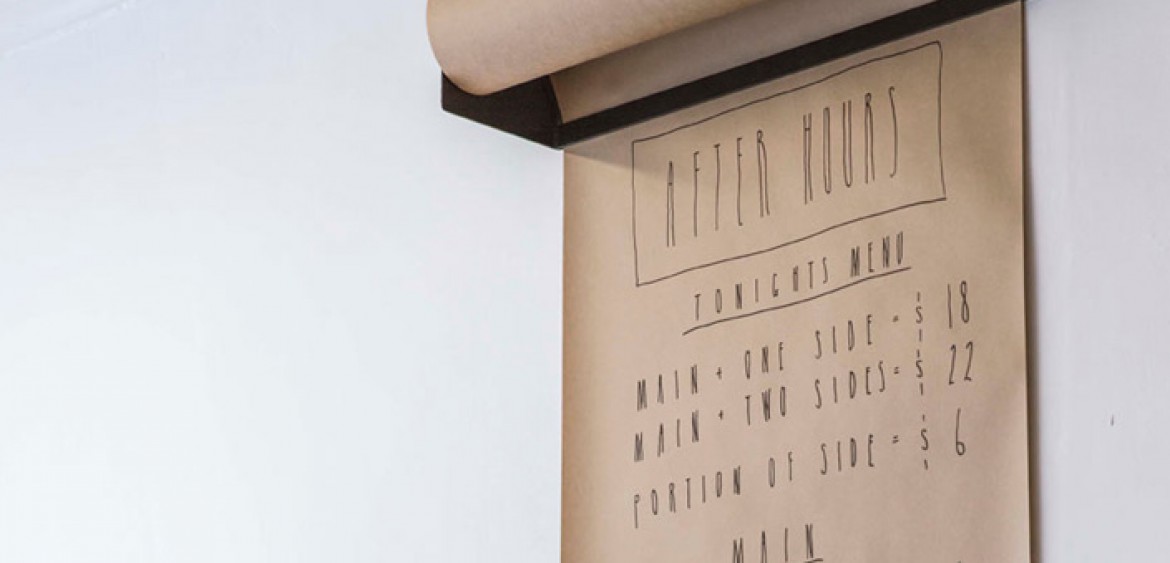 AFTER HOURS
TONIGHTS MENU
MAIN + ONE SIDE = $ 18
MAIN + TWO SIDES = $ 22
PORTION OF SIDE = $ 6
MAIN